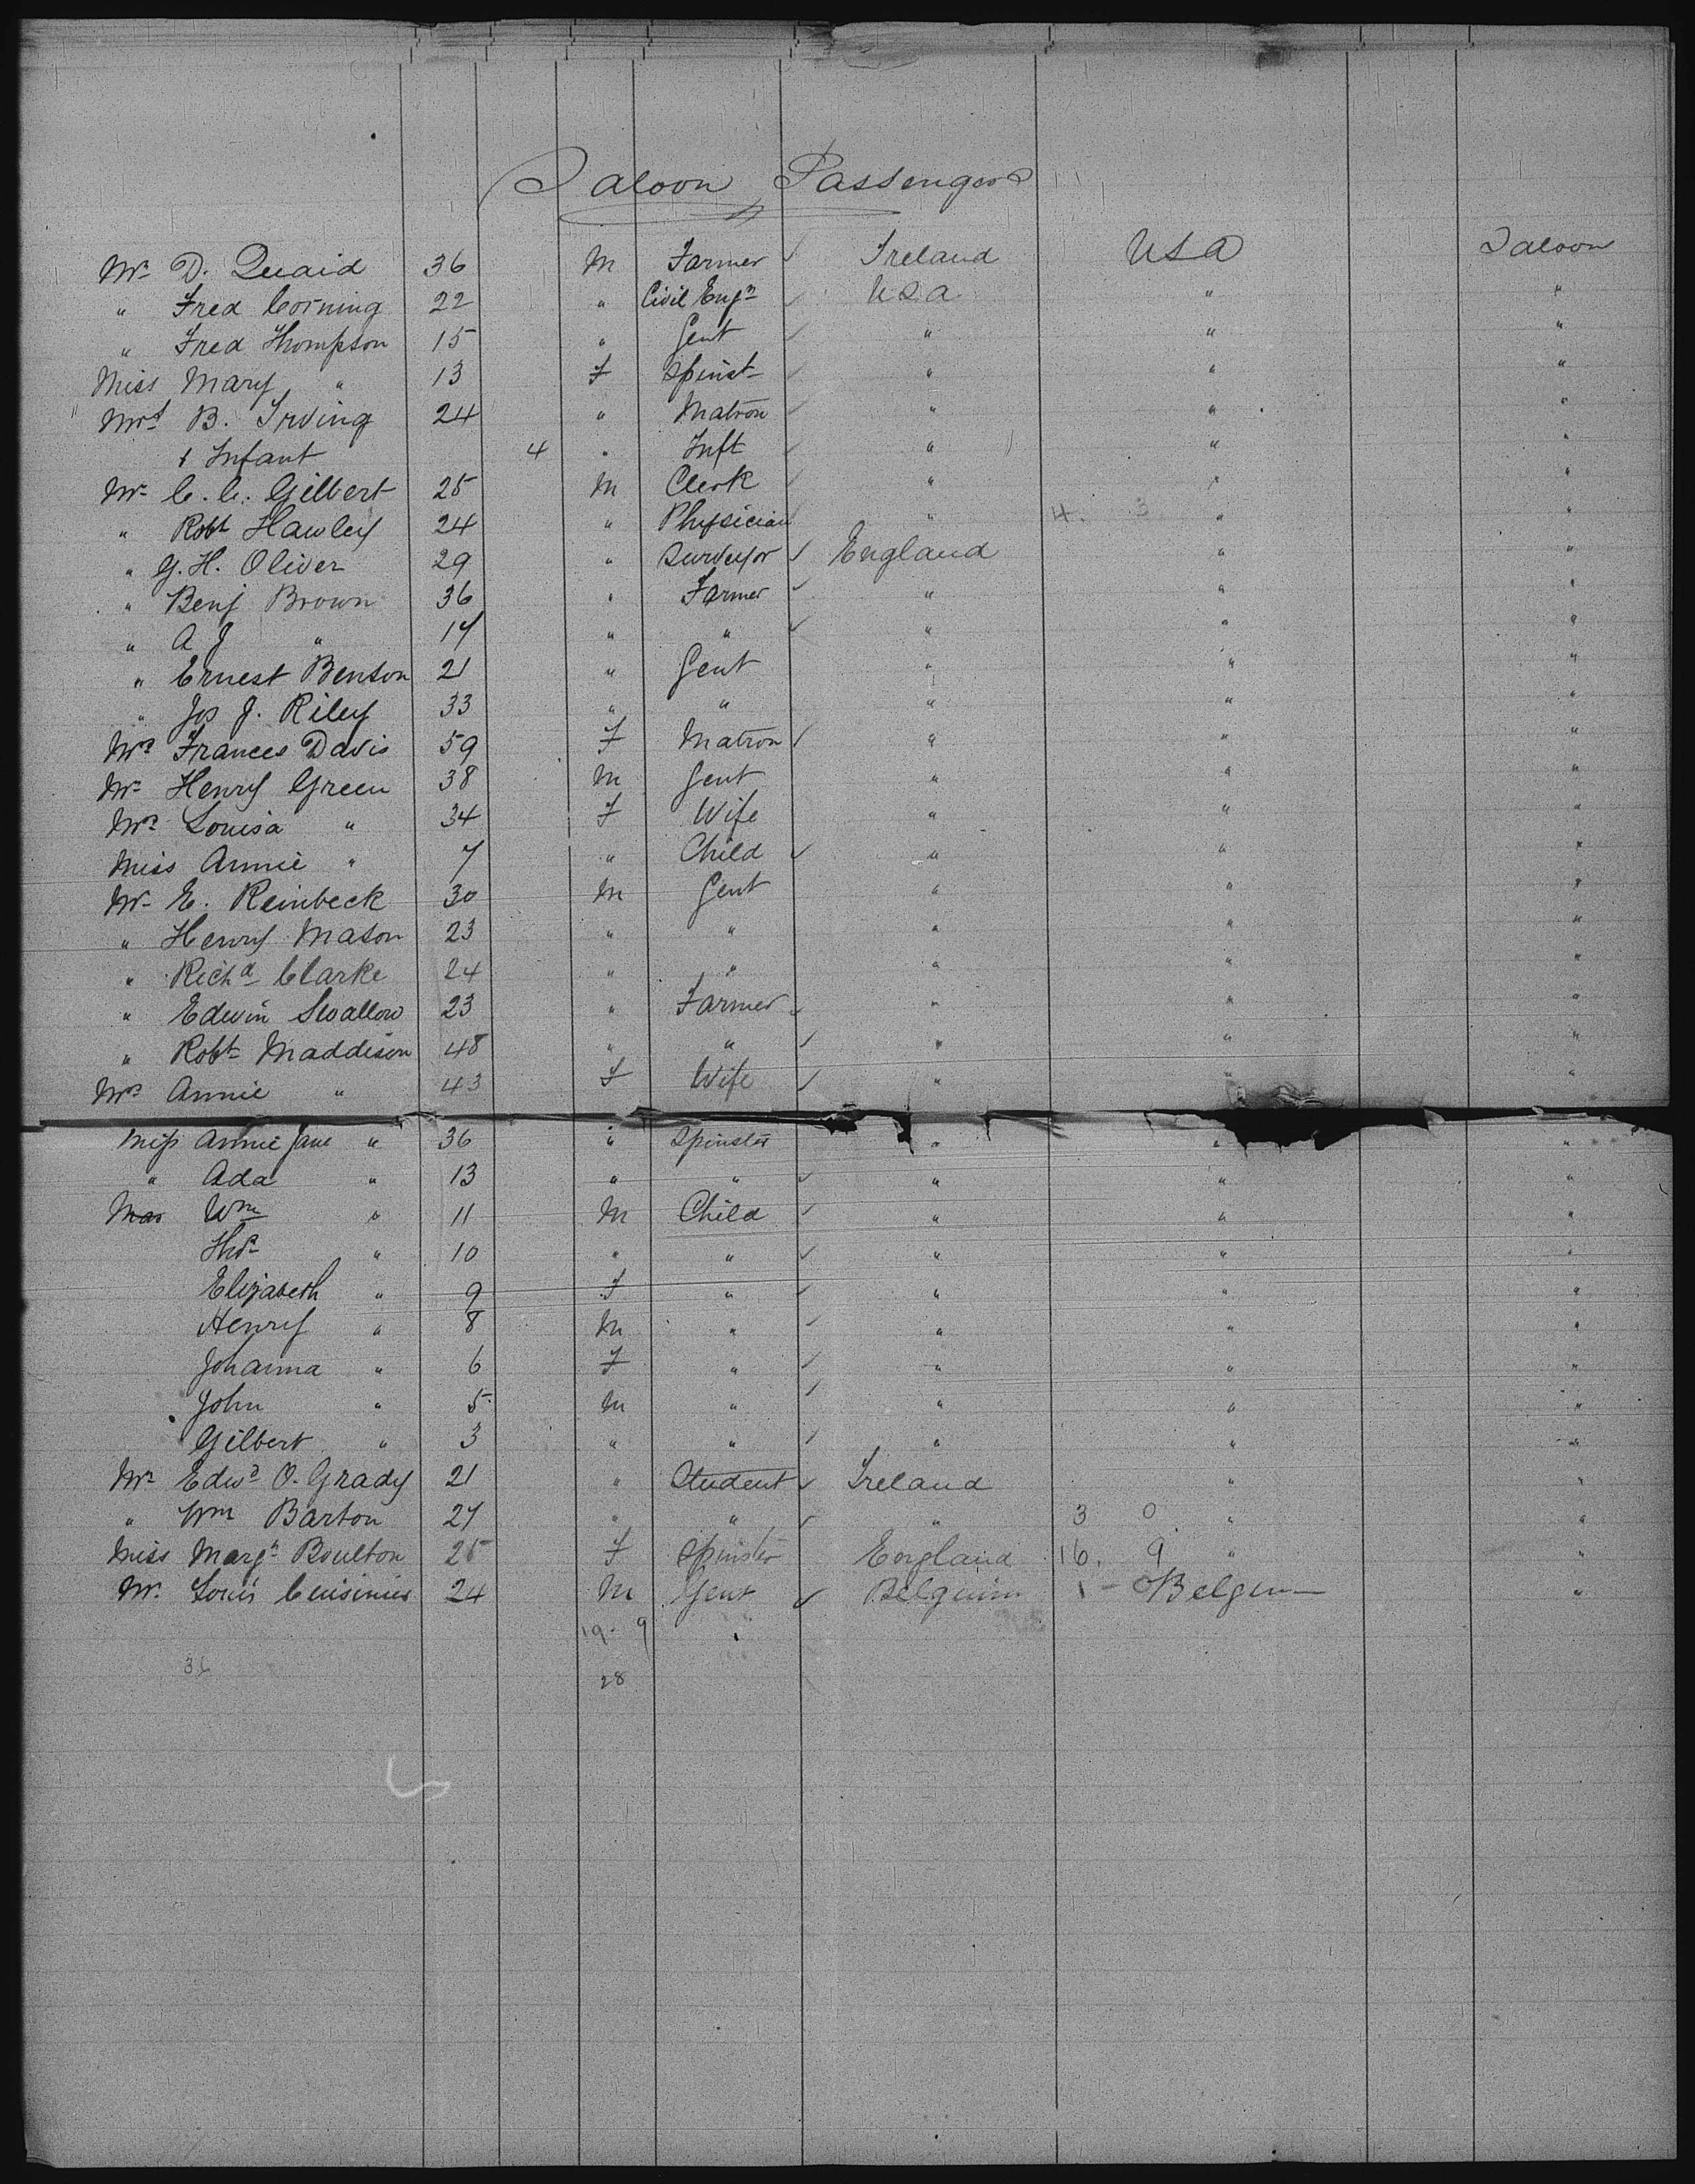 Saloon Passengers
Mr D. Quaid 36 M Farmer Ireland USA Saloon
" Fred Corning 22 " Civil Engr USA " "
" Fred Thompson 15 " Gent " " "
Miss Mary " 13 F Spinst " " "
Mrs B. Irving 24 " Matron " " "
1 Infant 4 " Inft " " "
Mr C. C. Gilbert 25 M Clerk " " "
" Robt Hawley 24 " Physician " 4. 3 " "
" G. H. Oliver 29 " Surveyor England " "
" Benj Brown 36 " Farmer " " "
" A J " 17 " " " " "
" Ernest Benson 21 " Gent " " "
" Jos J. Riley 33 " " " " "
Mrs Frances Davis 59 F Matron " " "
Mr Henry Green 38 M Gent " " "
Mrs Louisa " 34 F Wife " " "
Miss Annie " 7 " Child " " "
Mr E. Reinbeck 30 M Gent " " "
" Henry Mason 23 " " " " "
" Richd Clarke 24 " " " " "
" Edwin Swallow 23 " Farmer " " "
" Robt Maddison 48 " " " " "
Mrs Annie " 43 F Wife " " "
Miss Annie Jane " 36 " Spinster " " "
" Ada " 13 " " " " "
Mas Wm " 11 M Child " " "
Thos " 10 " " " " "
Elizabeth " 9 F " " " "
Henry " 8 M " " " "
Johanna " 6 F " " " "
John " 5 M " " " "
Gilbert " 3 " " " " "
Mr Edwd O. Grady 21 " Student Ireland " "
" Wm Barton 27 " " " 3 0 " "
Miss Margt Boulton 25 F Spinster England 16. 9 " "
Mr. Louis 24 M Gent Belguim 1 - 0 Belgium "
19 - 9
28